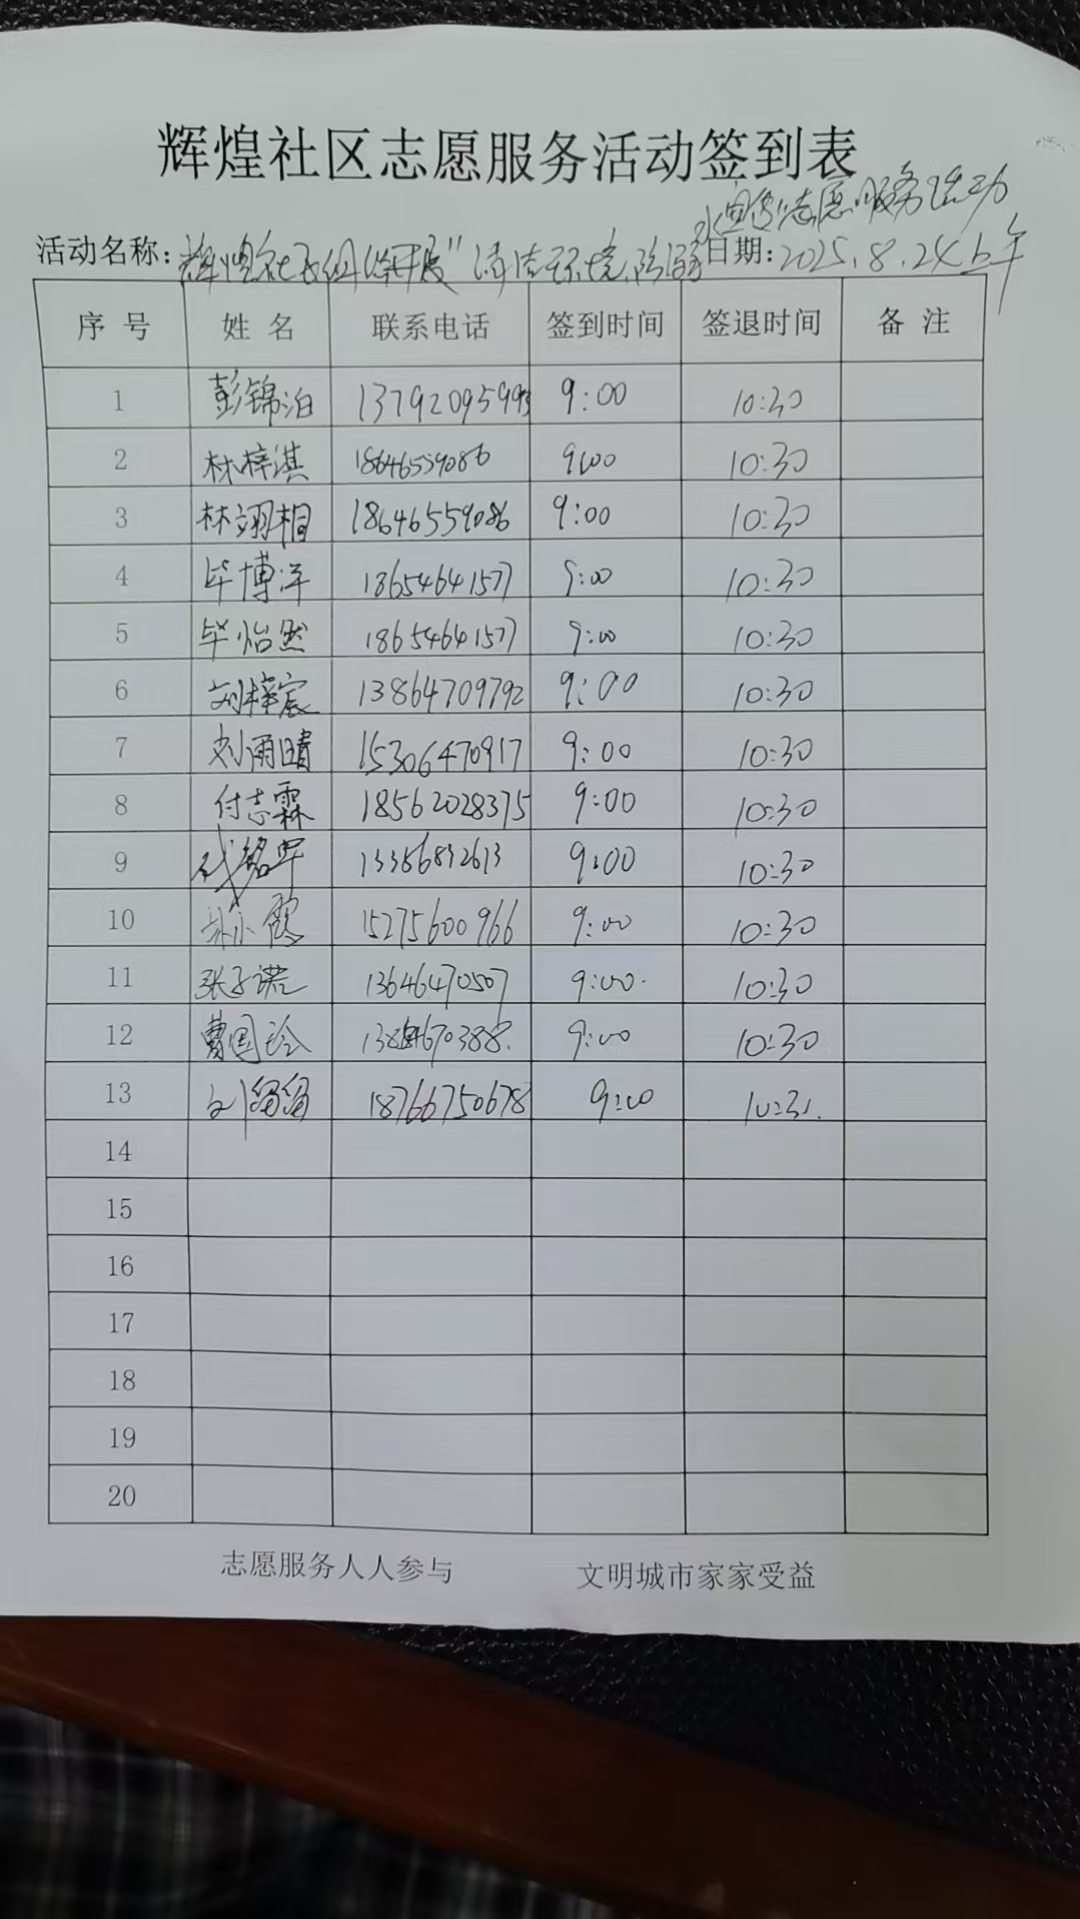 辉煌社区志愿服务活动签到表
志愿服务活动
活动名称：辉煌社区组织开展"清洁环境 日期：2025.8.24上午
序号 姓名 联系电话 签到时间 签退时间 备注
1 彭锦泊 9:00 10:30
2 林梓淇 18646559086 9:00 10:30
3 林翊桐 18646559086 9:00 10:30
4 毕博洋 18654641577 9:00 10:30
5 毕怡然 18654641577 9:00 10:30
6 刘梓宸 13864709792 9:00 10:30
7 刘雨晴 15306470917 9:00 10:30
8 付志霖 18562028375 9:00 10:30
9 13356832613 9:00 10:30
10 15275600966 9:00 10:30
11 张子诺 13646470507 9:00 10:30
12 曹国玲 9:00 10:30
13 18766750678 9:00
14
15
16
17
18
19
20
志愿服务人人参与 文明城市家家受益